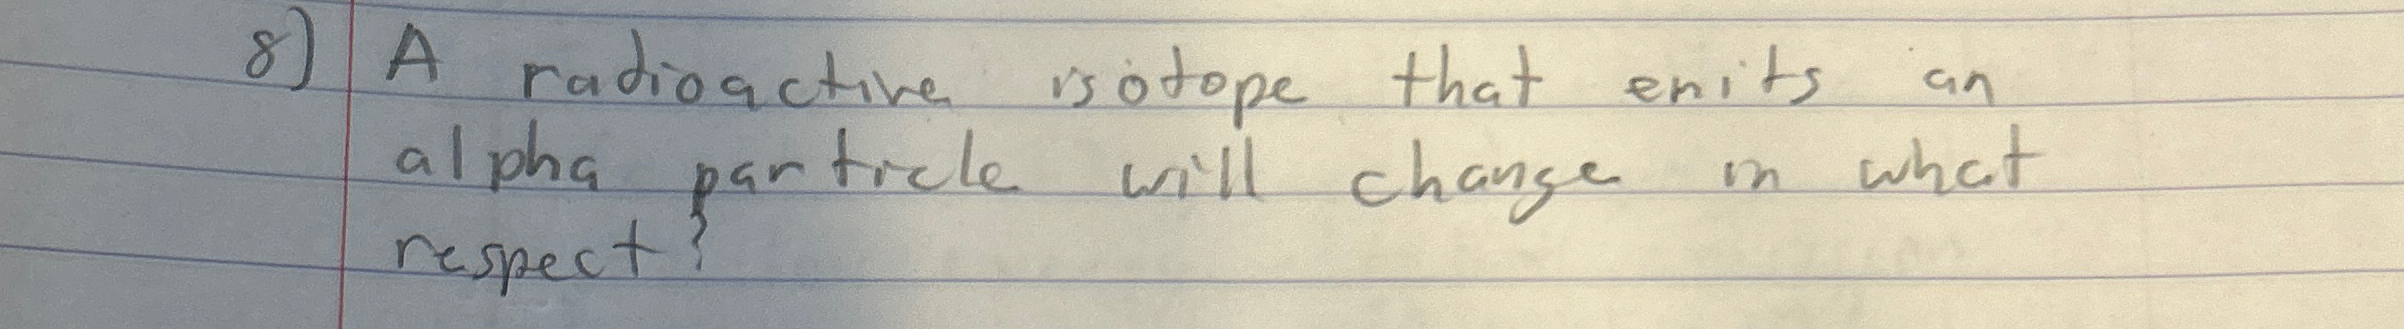 8) A radioactive isotope that emits an
alpha particle will change in what
respect?